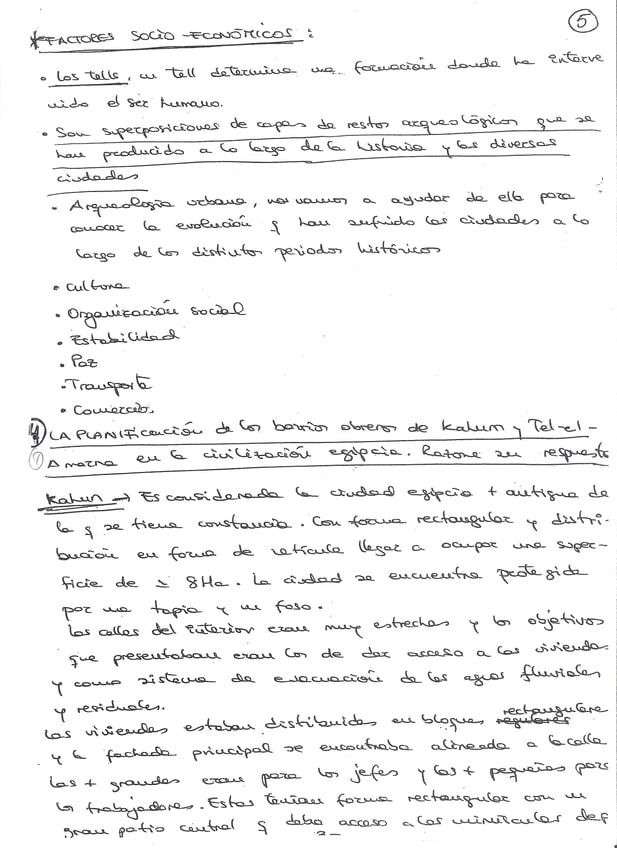 5
* FACTORES SOCIO-ECONÓMICOS:
• Los tells, un tell determina una formación donde ha interve
nido el ser humano.
• Son superposiciones de capas de restos arqueológicos que se
han producido a lo largo de la historia y las diversas
ciudades
• Arqueología urbana, nos vamos a ayudar de ella para
conocer la evolución q han sufrido las ciudades a lo
largo de los distintos periodos históricos
• Cultura
• Organización social
• Estabilidad
• Paz
• Transporte
• Comercio.
4) LA PLANIFICACIÓN de los barrios obreros de Kahun y Tel-el-
1) Amarna en la civilización egipcia. Razone su respuesta
Kahun → Es considerada la ciudad egipcia + antigua de
la q se tiene constancia. Con forma rectangular y distri-
bución en forma de retícula llegar a ocupar una super-
ficie de ≃ 8Ha. La ciudad se encuentra protegida
por una tapia y un foso.
Las calles del interior eran muy estrechas y los objetivos
que presentaban eran los de dar acceso a las viviendas
y como sistema de evacuación de las aguas fluviales
y residuales.
Las viviendas estaban distribuidas en bloques regulares rectangulare
y la fachada principal se encontraba alineada a la calle
las + grandes eran para los jefes y las + pequeñas para
los trabajadores. Estas tenían forma rectangular con un
gran patio central q daba acceso a las minúsculas dep